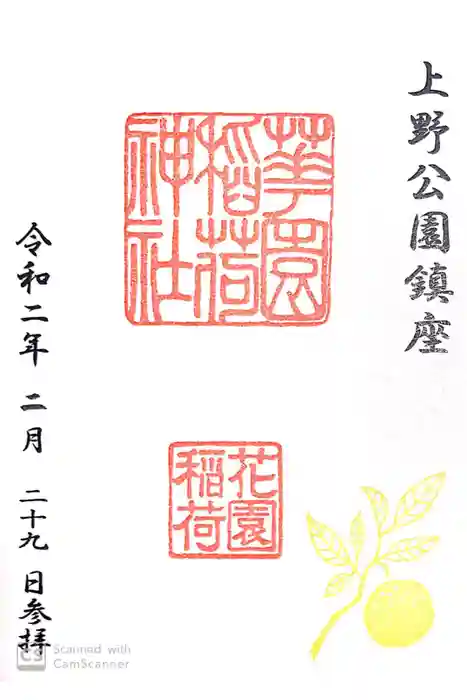 上野公園鎮座
華園
稲荷
神社
花園
稲荷
令和二年 二月 二十九日参拝
CS Scanned with
CamScanner